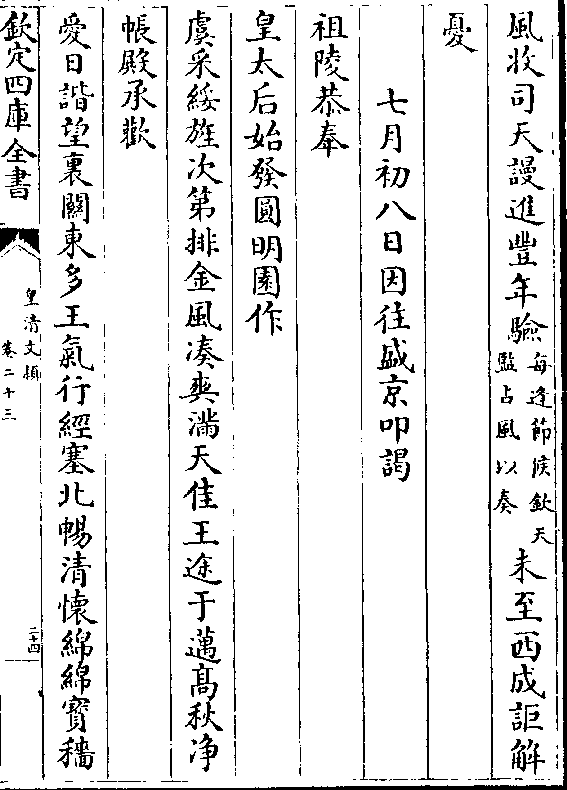 風牧司天謾進豐年驗每逢節候欽天監占風以奏未至西成詎解
憂
七月初八日因往盛京叩謁
祖陵恭奉
皇太后始發圓明園作
虞釆綏旌次第排金風凑爽滿天佳王途于邁髙秋净
帳殿承歡
愛日諧望裏關東多王氣行經塞北暢清懷綿綿寳穡
欽定四庫全書
皇清文頴
卷二十三
二十四